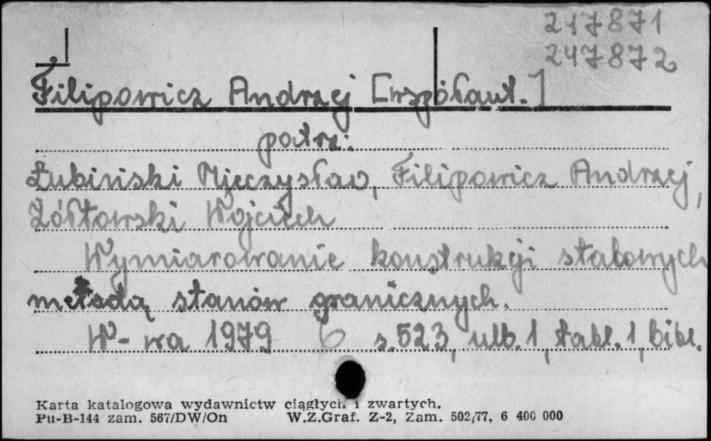 217871
247872
Filipowicz Andrzej [współaut.]
patrz:
Łubiński Mieczysław, Filipowicz Andrzej,
Żółtowski Wojciech
Wymiarowanie konstrukcji stalowych
metodą stanów granicznych.
W-wa 1979 6 s.523, ulb.1, tabl.1, bibl.
Karta katalogowa wydawnictw ciągłych i zwartych.
Pu-B-144 zam. 567/DW/On W.Z.Graf. Z-2, Zam. 502/77, 6 400 000